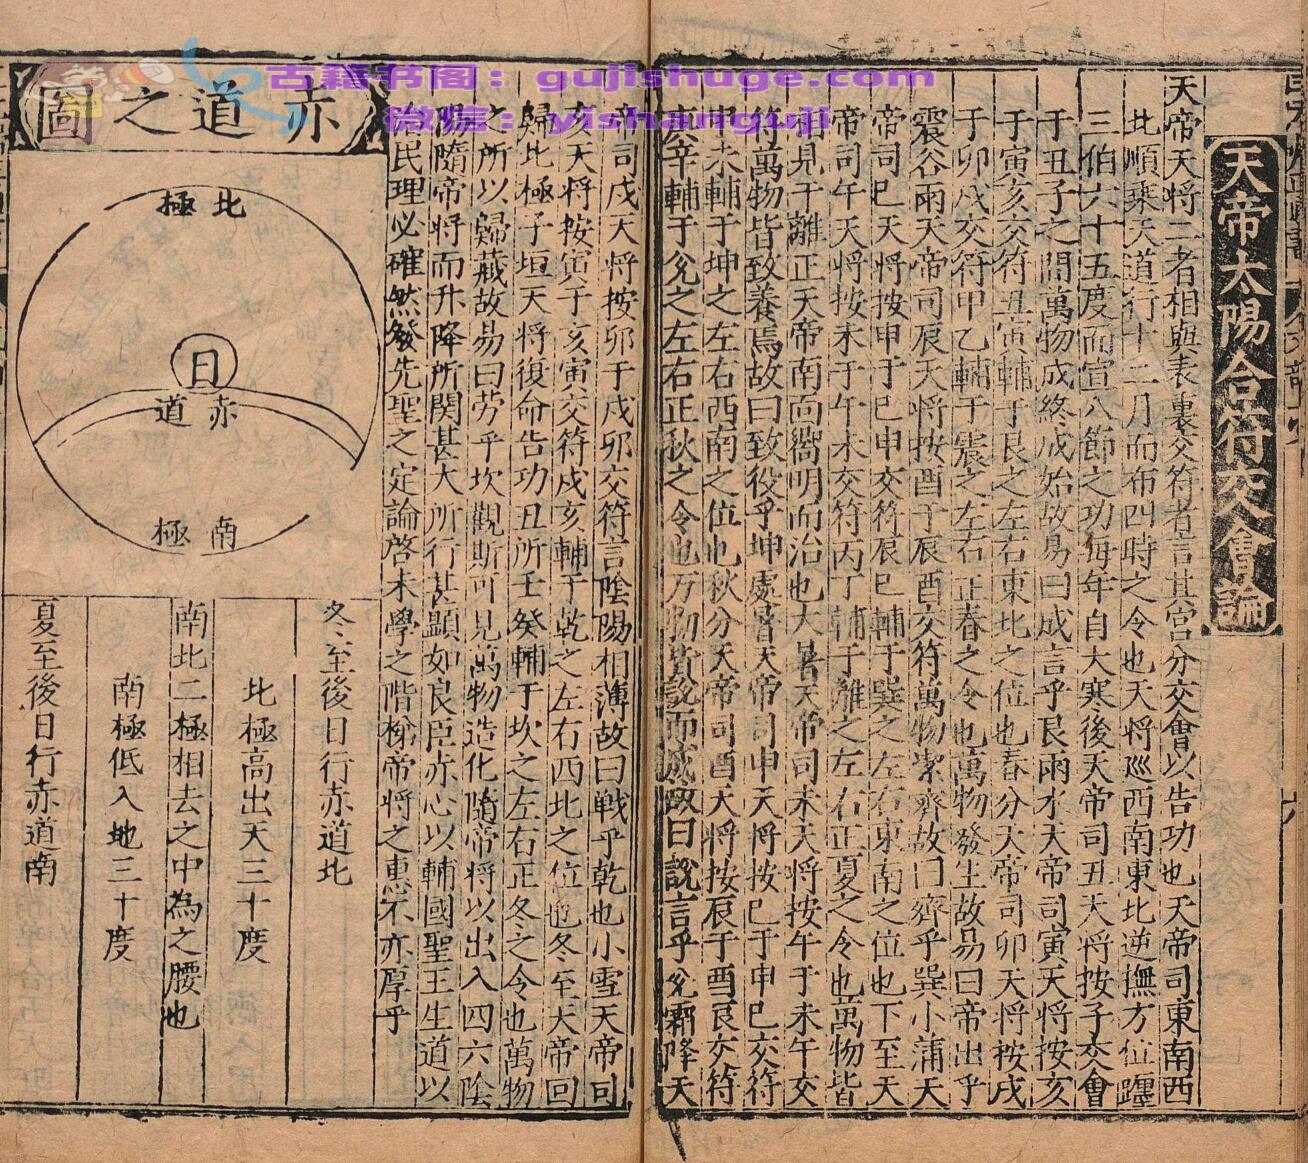 古籍书阁：gujishuge.com
微信：yishanguji
天帝太陽合符交會論
天帝天將二者相與表裏交符者言其宮分交會以告功也天帝司東南西
北順乘天道行十二月而布四時之令也天將巡西南東北逆撫方位躔
三伯六十五度而宣八節之功每年自大寒後天帝司丑天將按子交會
于丑子之間萬物成終成始故易曰成言乎艮雨水天帝司寅天將按亥
于寅亥交符丑寅輔于艮之左右東北之位也春分天帝司卯天將按戌
于卯戌交符甲乙輔于震之左右正春之令也萬物發生故易曰帝出乎
震谷雨天帝司辰天將按酉于辰酉交符萬物潔齊故曰齊乎巽小蒲天
帝司巳天將按申于巳申交符辰巳輔于巽之左右東南之位也下至天
帝司午天將按未于午未交符丙丁輔于離之左右正夏之令也萬物皆
相見于離正天帝南面嚮明而治也大暑天帝司未天將按午于未午交
符萬物皆致養焉故曰致役乎坤處暑天帝司申天將按巳于申巳交符
申未輔于坤之左右西南之位也秋分天帝司酉天將按辰于酉辰交符
庚辛輔于兌之左右正秋之令也万物皆說而成故曰說言乎兌霜降天
帝司戌天將按卯于戌卯交符言陰陽相薄故曰戰乎乾也小雪天帝司
亥天將按寅于亥寅交符戌亥輔于乾之左右西北之位也冬至天帝回
歸北極子垣天將復命告功丑所壬癸輔于坎之左右正冬之令也萬物
之所以歸藏故易曰勞乎坎觀斯可見萬物造化隨帝將以出入四六陰
陽隨帝將而升降所関甚大所行甚顯如良臣赤心以輔國聖王生道以
治民理必確然發先聖之定論啓未學之階梯帝將之惠不亦厚乎
赤道之圖
北極
日
赤道
南極
冬至後日行赤道北
北極高出天三十度
南北二極相去之中為之腰也
南極低入地三十度
夏至後日行赤道南